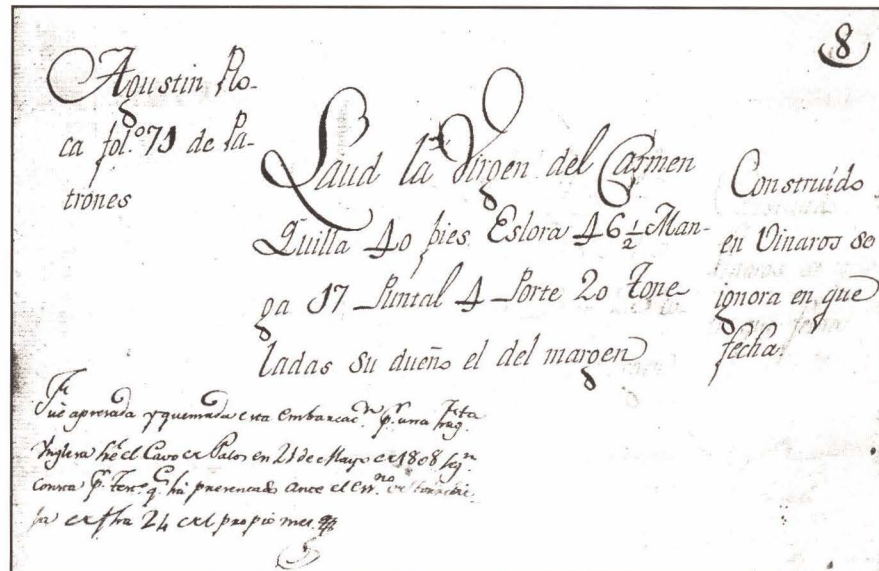 8
Agustin Ro-
ca fol.º 71 de Pa-
trones
Laud la Virgen del Carmen
Quilla 40 pies Eslora 46 1/2 Man-
ga 17 Puntal 4 Porte 20 Tone
ladas su dueño el del margen
Construido
en Vinaros se
ignora en que
fecha
Fue apresada y quemada esta embarcac.n p.r una frag.ta
Ynglesa fre el Cavo de Palos en 21 de Mayo de 1808 seg.n
consta p.r Test.o q.e há presentado ante el ess.no de
fha 24 del propio mes